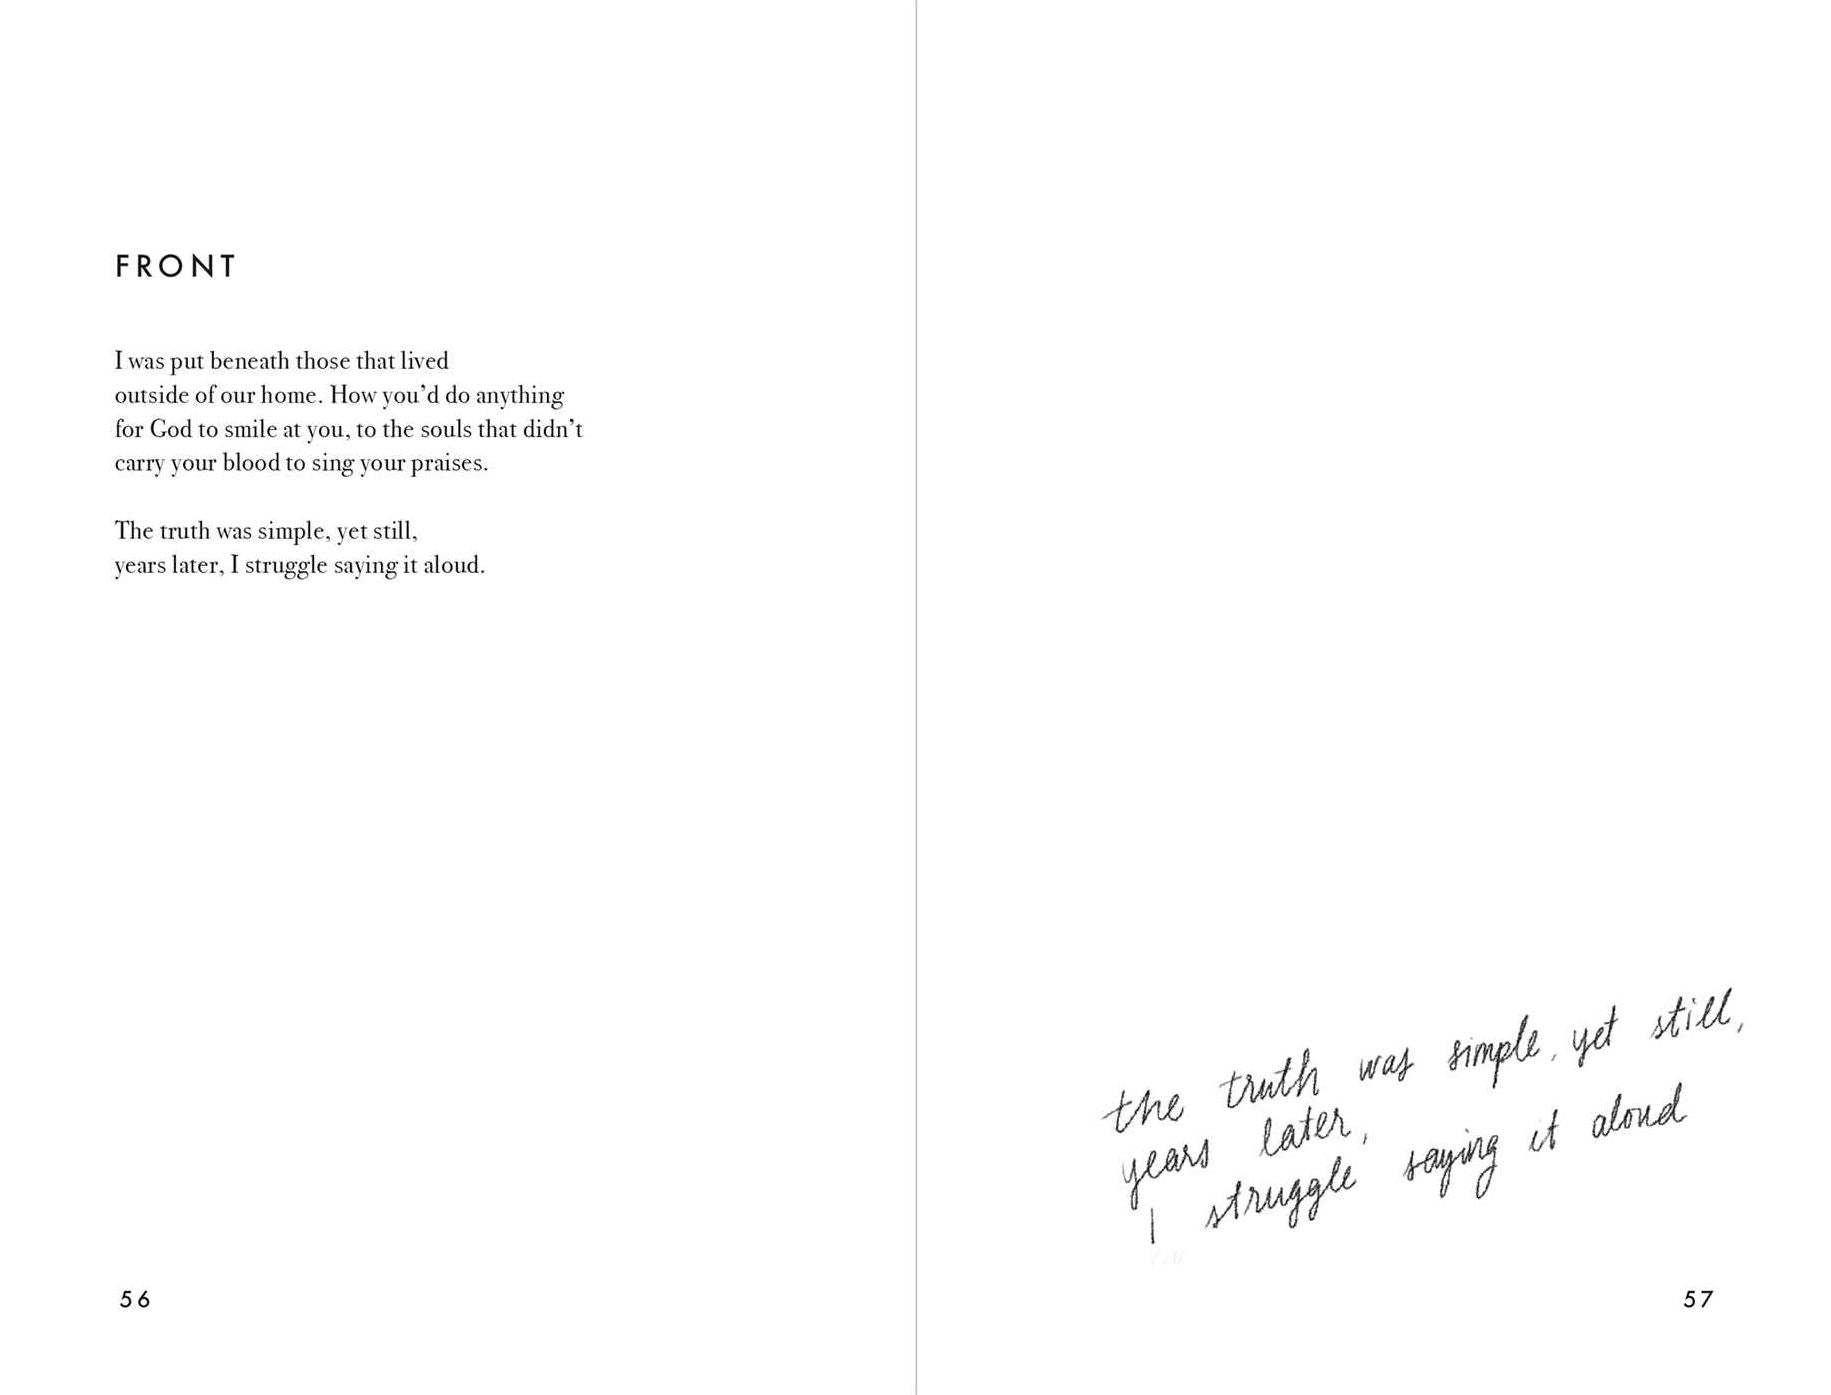 FRONT
I was put beneath those that lived
outside of our home. How you’d do anything
for God to smile at you, to the souls that didn’t
carry your blood to sing your praises.
The truth was simple, yet still,
years later, I struggle saying it aloud.
56
the truth was simple, yet still,
years later,
I struggle saying it aloud
57